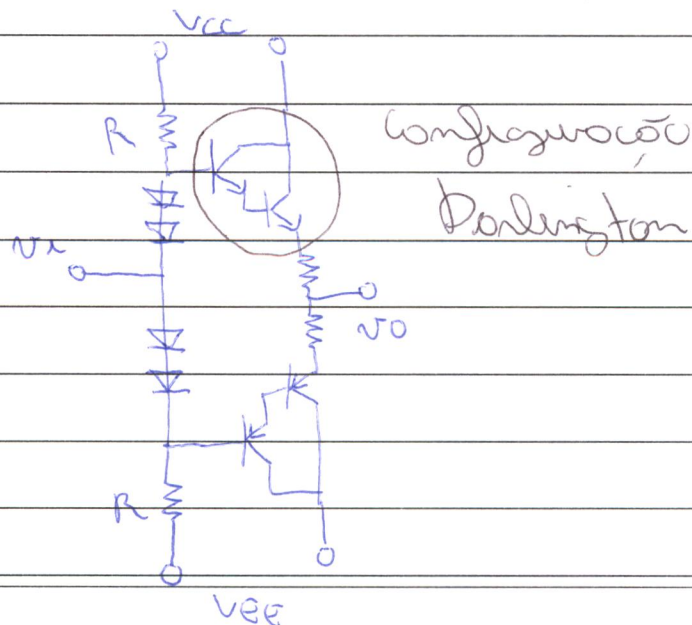 Vcc
R
Configuração
Darlington
vi
vo
R
VEE